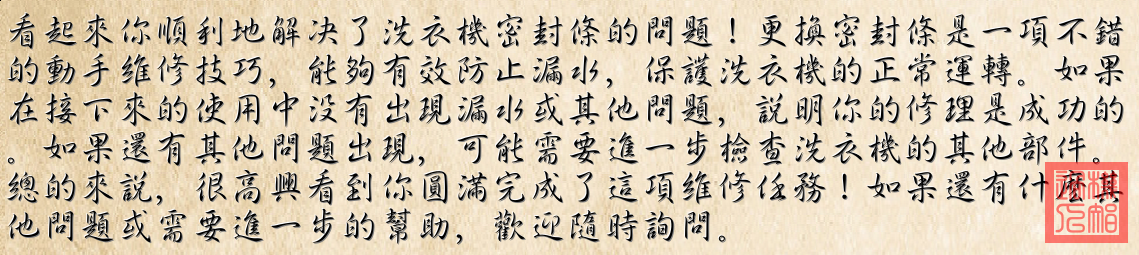 看起來你順利地解决了洗衣機密封條的問題！更換密封條是一項不錯
的動手維修技巧，能夠有效防止漏水，保護洗衣機的正常運轉。如果
在接下來的使用中没有出現漏水或其他問題，説明你的修理是成功的
。如果還有其他問題出現，可能需要進一步檢查洗衣機的其他部件。
總的來説，很高興看到你圓滿完成了這項維修任務！如果還有什麽其
他問題或需要進一步的幫助，歡迎隨時詢問。